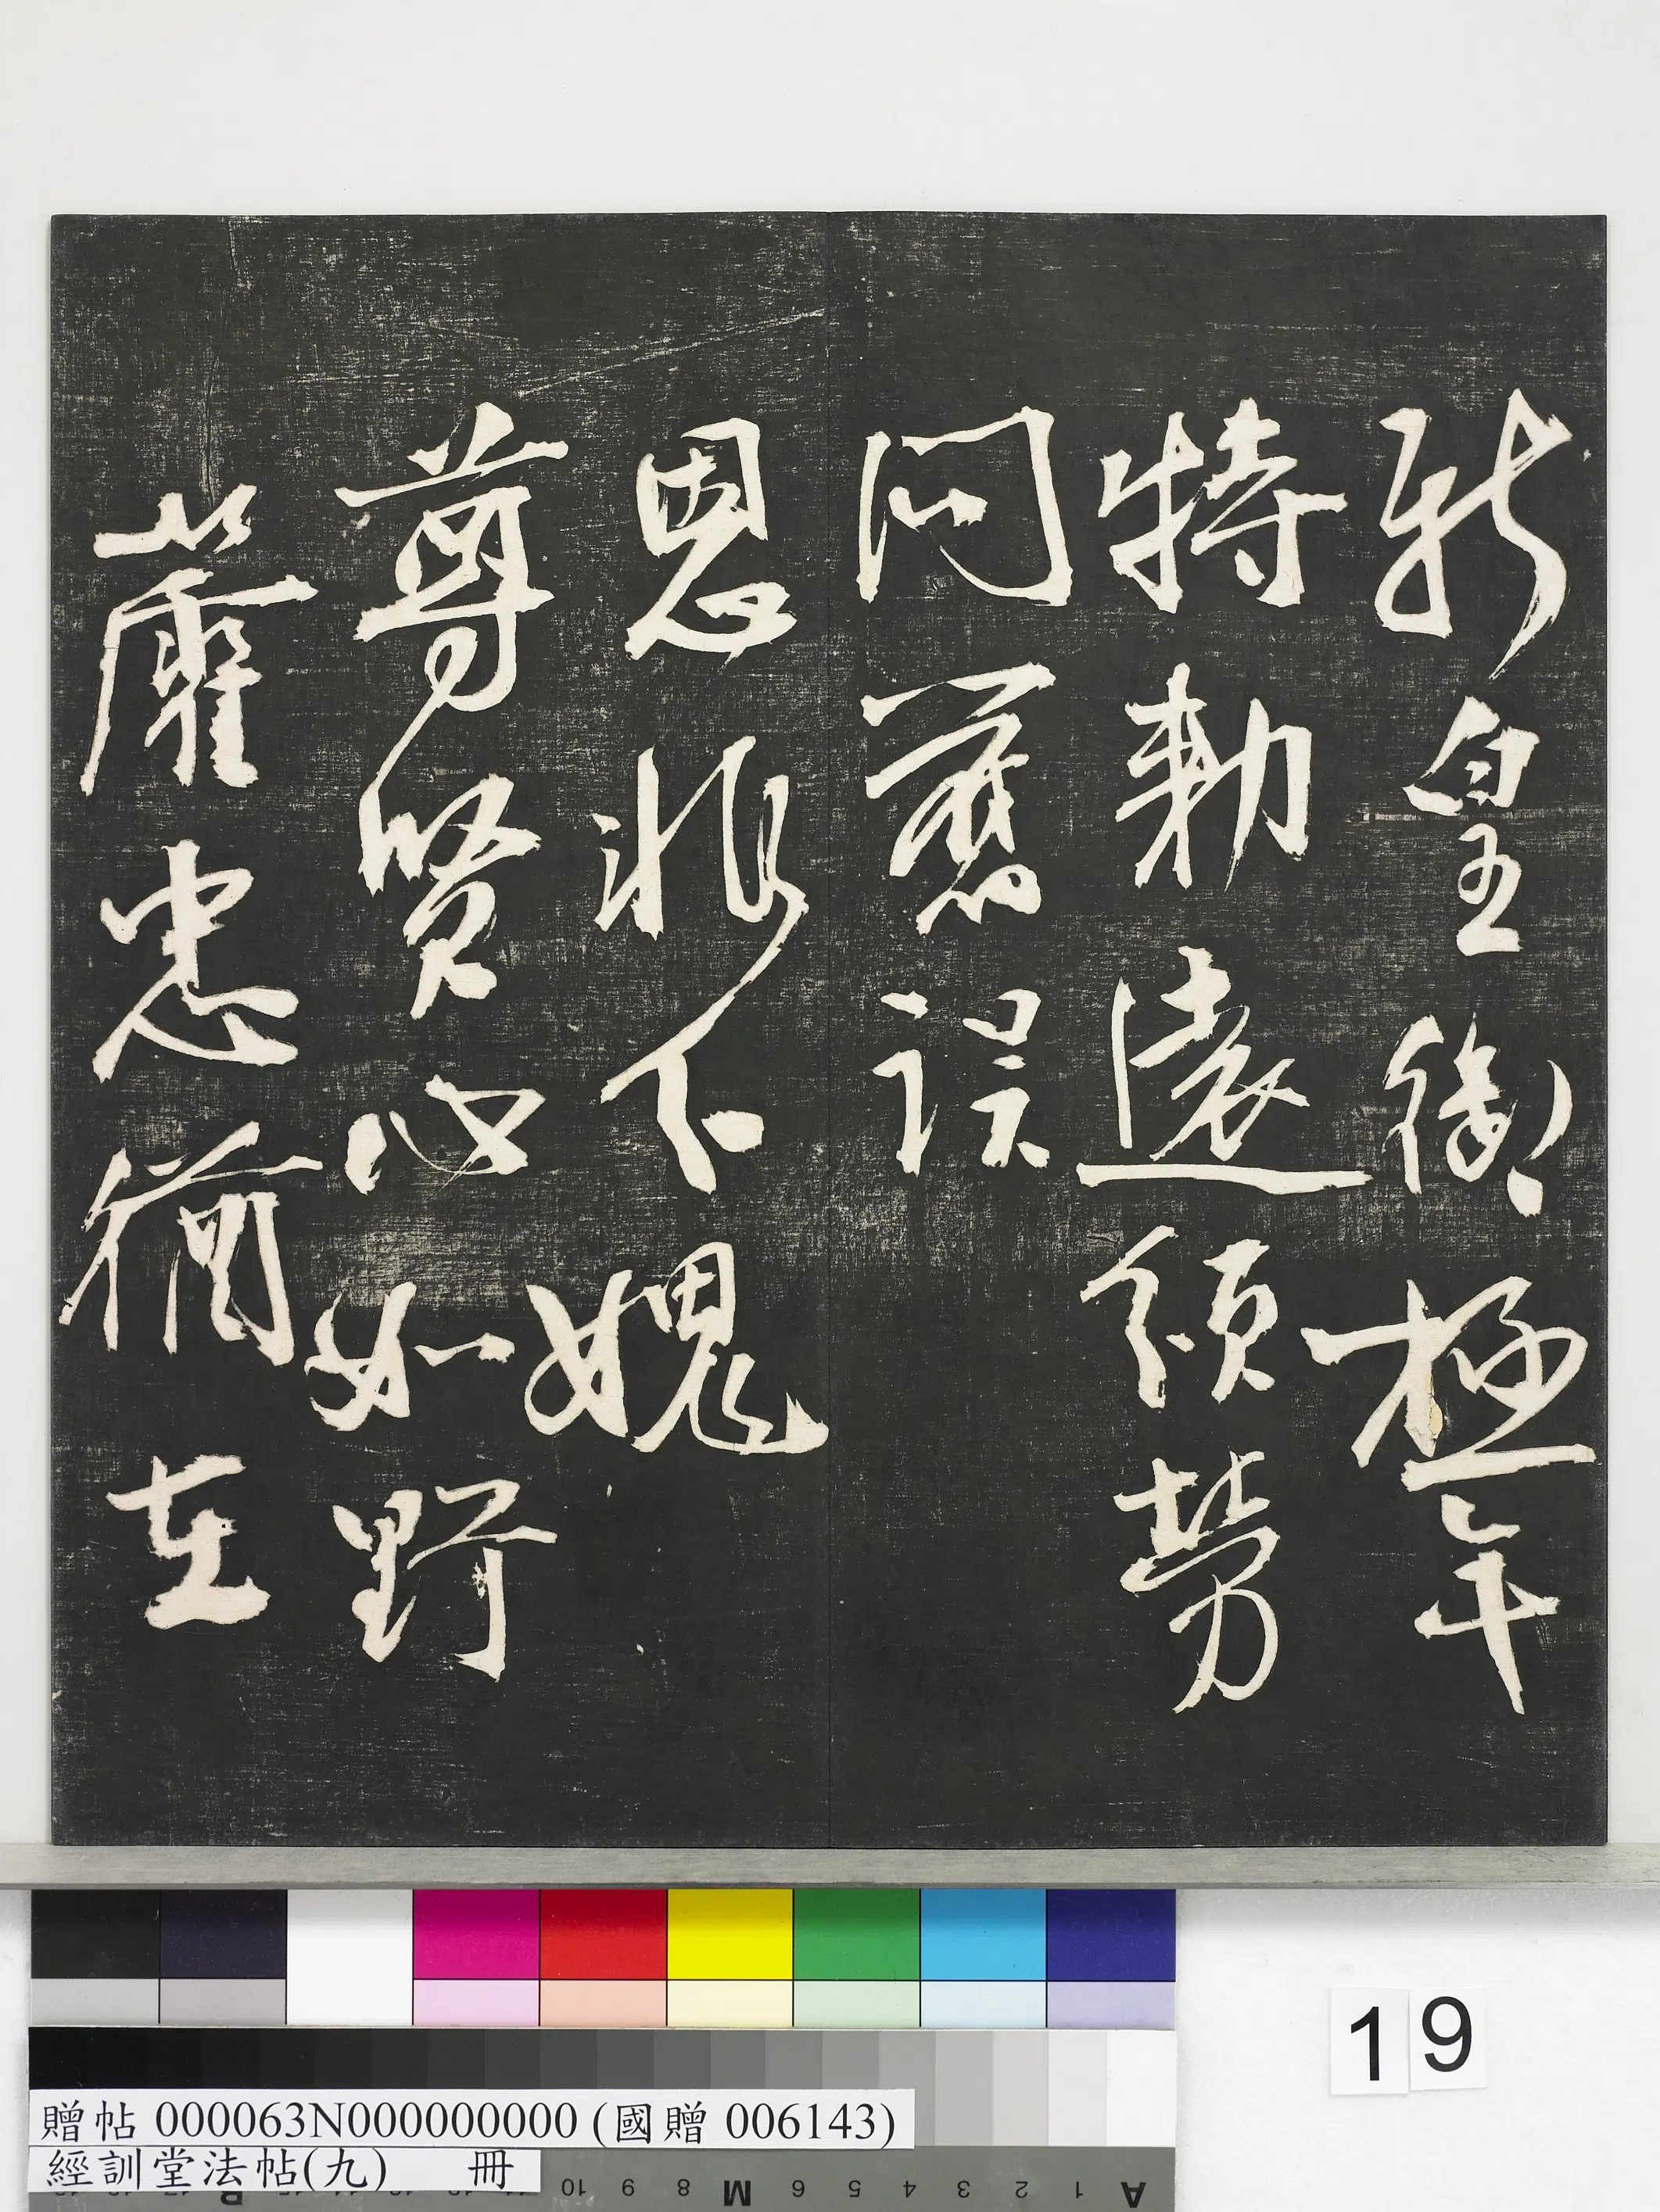 新皇御極年
特勅遠頒勞
問舊誤
恩非下媿
尊賢心如野
蘿忠猶在
19
贈帖 000063N000000000 (國贈 006143)
經訓堂法帖(九) 冊